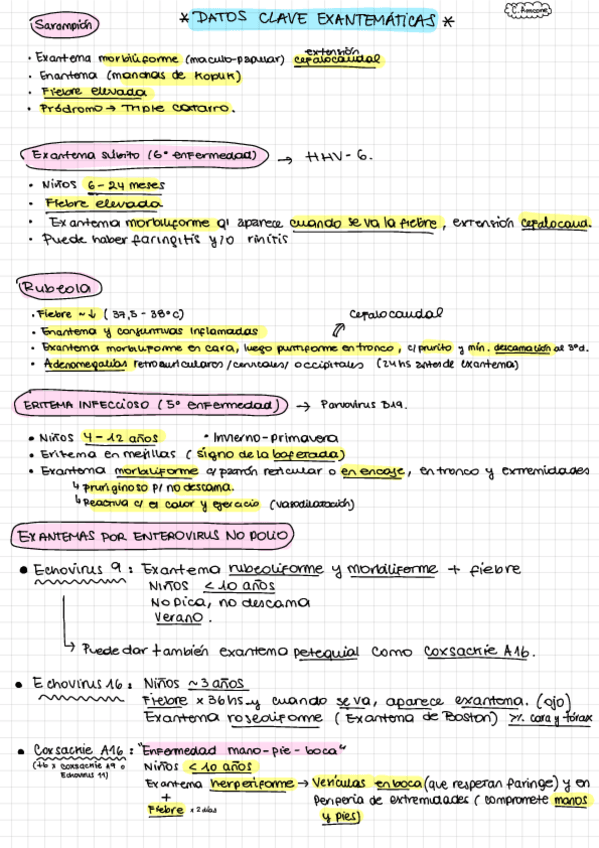 * DATOS CLAVE EXANTEMÁTICAS *
Sarampión
extensión
• Exantema morbiliforme (maculo-papular) cefalocaudal
• Enantema (manchas de Koplik)
• Fiebre elevada
• Pródromo → Triple catarro.
Exantema súbito (6º enfermedad) → HHV-6.
• Niños 6-24 meses
• Fiebre elevada
• Exantema morbiliforme q' aparece cuando se va la fiebre, extensión cefalocaud.
• Puede haber faringitis y/o rinitis
Rubeola
• Fiebre ~↓ (37,5 - 38°C) Cefalocaudal
• Enantema y conjuntivas inflamadas
• Exantema morbiliforme en cara, luego puntiforme en tronco, c/prurito y mín. descamación al 3ºd.
• Adenomegalias retroauriculares/cervicales/occipitales (24hs antes de exantema)
ERITEMA INFECCIOSO (5º enfermedad) → Parvovirus B19.
• Niños 4-12 años • Invierno-primavera
• Eritema en mejillas (signo de la bofetada)
• Exantema morbiliforme c/patrón reticular o en encaje, en tronco y extremidades
↳ pruriginoso p/ no descama.
↳ Reactiva c/ el calor y ejercicio (vasodilatación)
EXANTEMAS POR ENTEROVIRUS NO POLIO
• Echovirus 9: Exantema rubeoliforme y morbiliforme + fiebre
Niños <10 años
No pica, no descama
Verano.
↳ Puede dar también exantema petequial como coxsackie A16.
• Echovirus 16: Niños ~3 años
Fiebre x 36hs y cuando se va, aparece exantema. (ojo)
Exantema roseoliforme (Exantema de Boston) cara y tórax
• Coxsackie A16: "Enfermedad mano-pie-boca"
(tb x coxsackie A9 o Niños <10 años
Echovirus 11) Exantema herpetiforme → Vesículas en boca (que respetan faringe) y en
+ Periferia de extremidades (compromete manos
Fiebre x 2 días y pies)